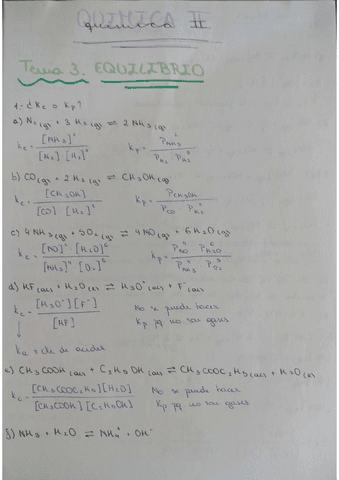 QUÍMICA II
química II
Tema 3. EQUILIBRIO
1- ¿Kc o Kp?
a) N₂(g) + 3 H₂(g) ⇌ 2 NH₃(g)
Kc = [NH₃]² / [N₂] [H₂]³   Kp = P²NH₃ / PN₂ · P³H₂
b) CO(g) + 2 H₂(g) ⇌ CH₃OH(g)
Kc = [CH₃OH] / [CO] [H₂]²   Kp = PCH₃OH / PCO · P²H₂
c) 4 NH₃(g) + 5 O₂(g) ⇌ 4 NO(g) + 6 H₂O(g)
Kc = [NO]⁴ [H₂O]⁶ / [NH₃]⁴ [O₂]⁵   Kp = P⁴NO · P⁶H₂O / P⁴NH₃ · P⁵O₂
d) HF(ac) + H₂O(l) ⇌ H₃O⁺(ac) + F⁻(ac)
Kc = [H₃O⁺] [F⁻] / [HF]   No se puede hacer
Kp pq no son gases
↓
Ka = cte de acidez
e) CH₃COOH(ac) + C₂H₅OH(ac) ⇌ CH₃COOC₂H₅(ac) + H₂O(l)
Kc = [CH₃COOC₂H₅] [H₂O] / [CH₃COOH] [C₂H₅OH]   No se puede hacer
Kp pq no son gases
f) NH₃ + H₂O ⇌ NH₄⁺ + OH⁻